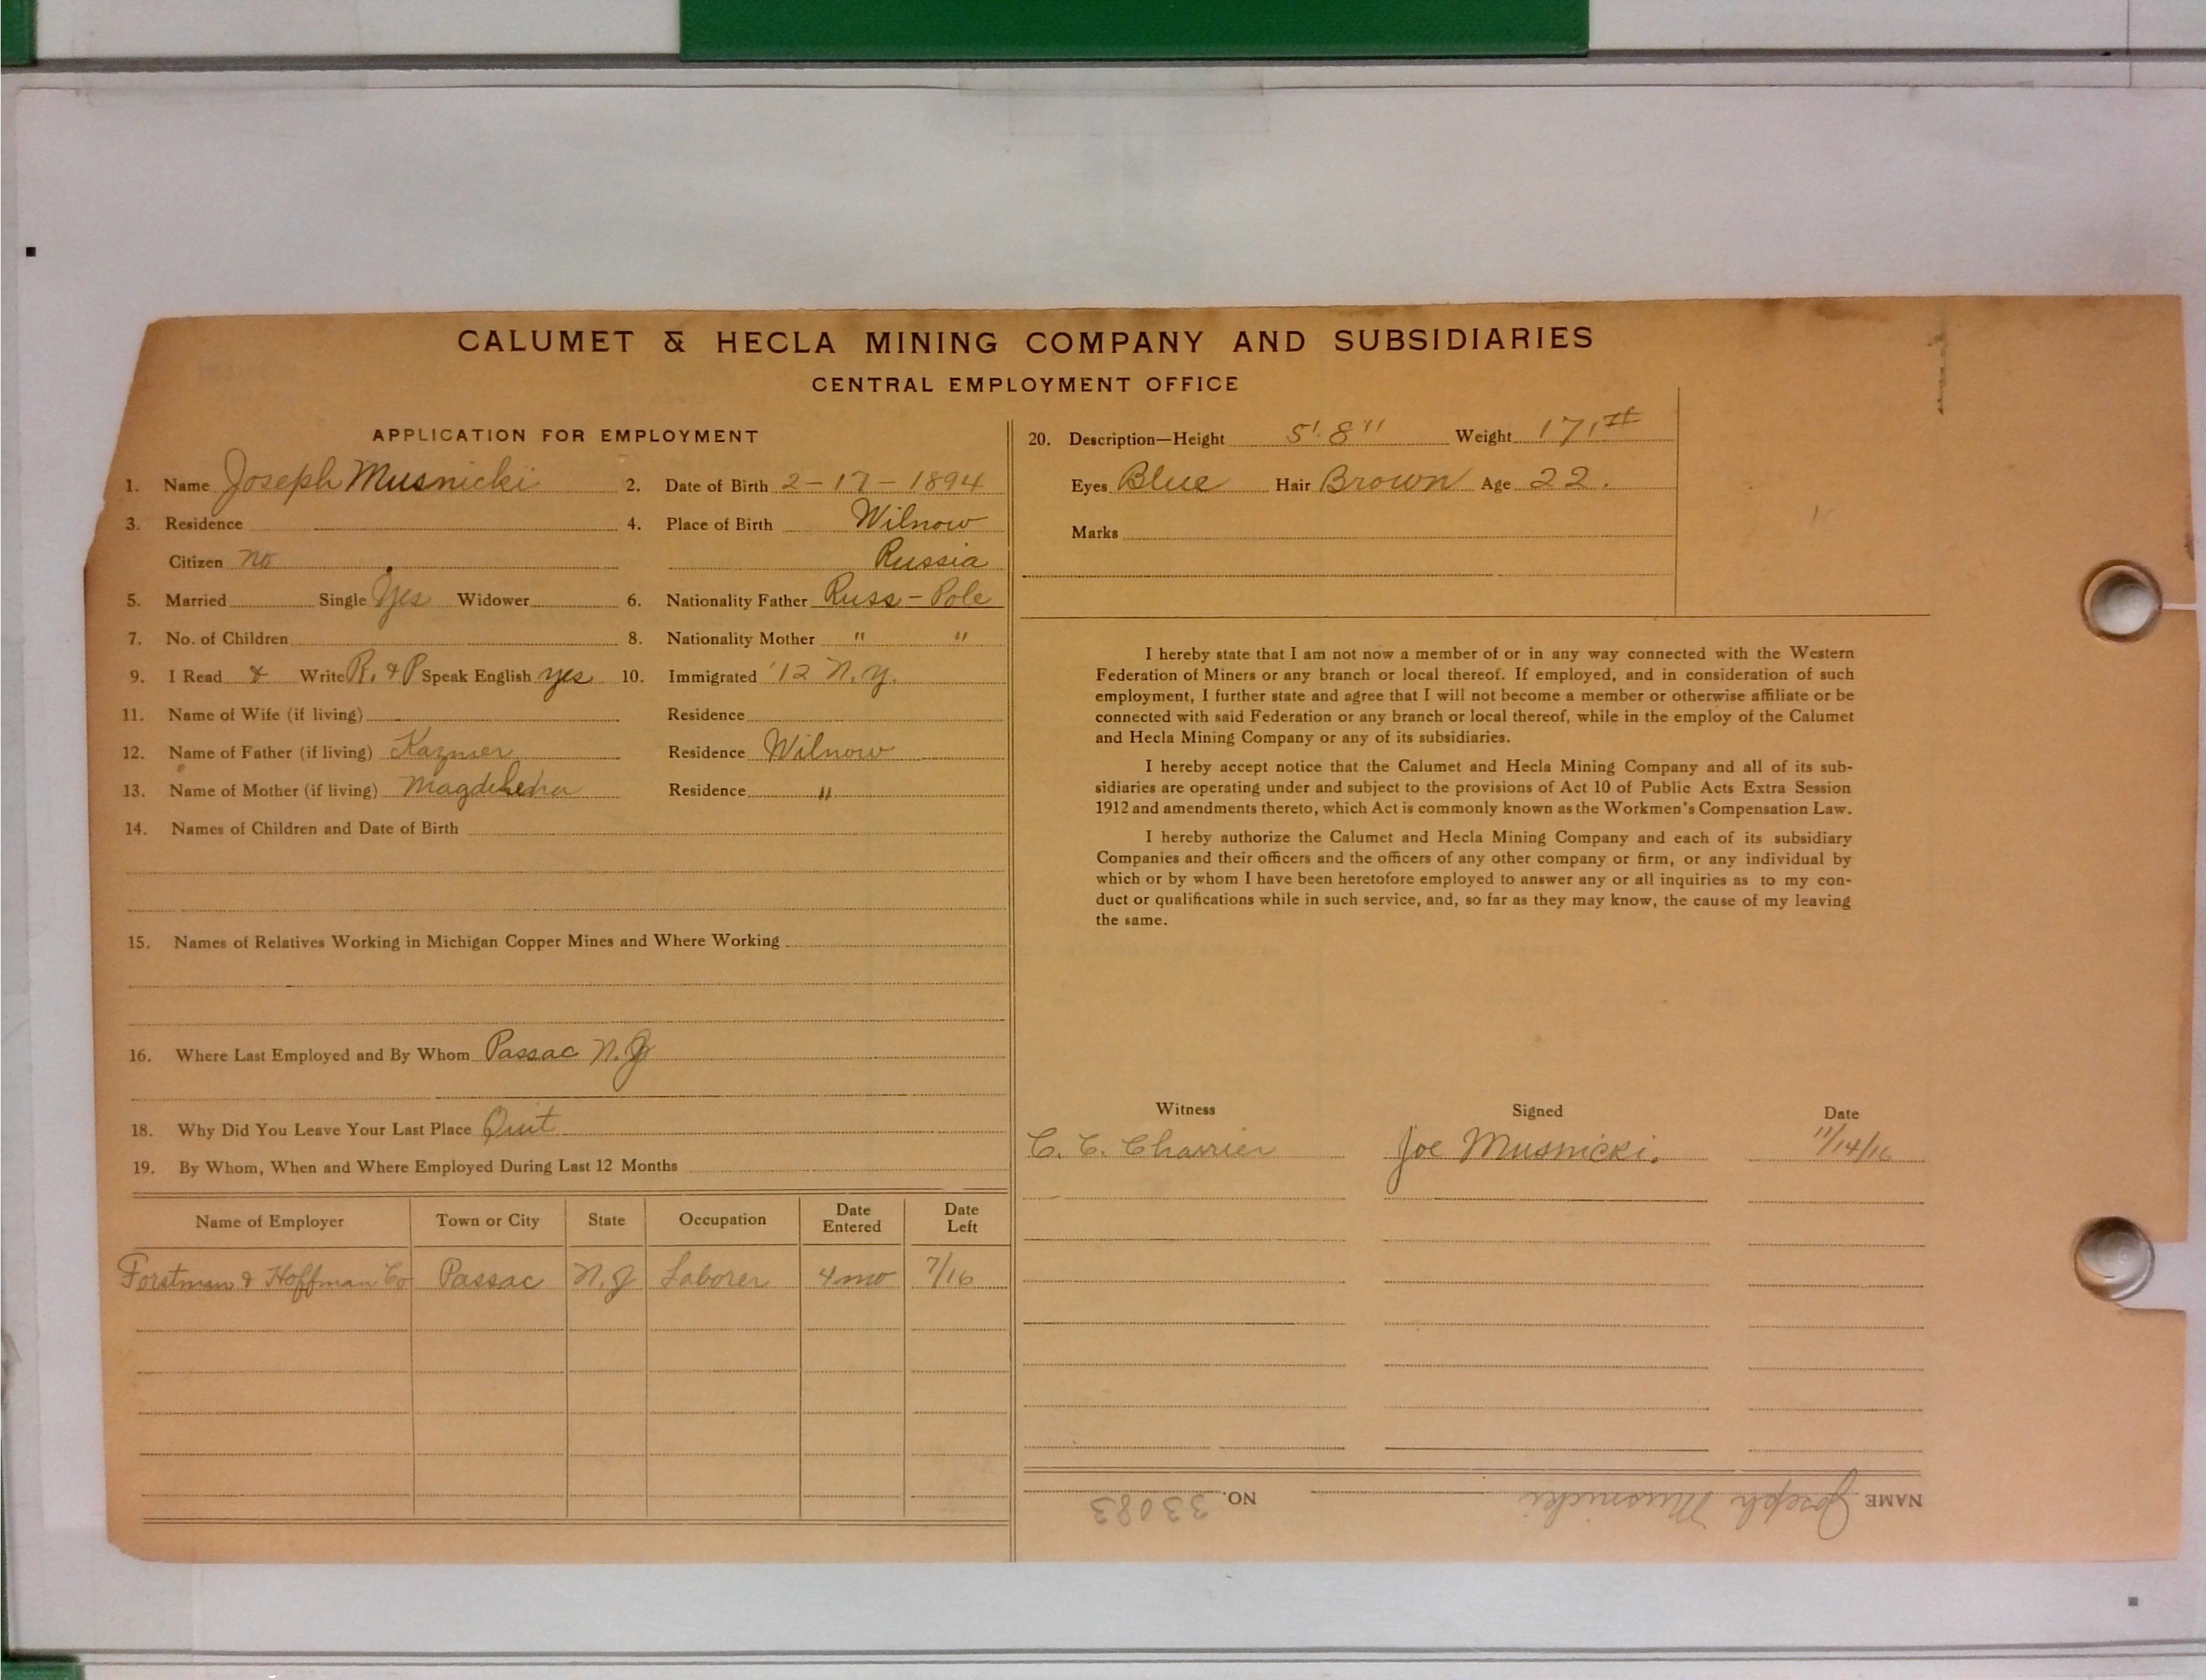 CALUMET & HECLA MINING COMPANY AND SUBSIDIARIES
CENTRAL EMPLOYMENT OFFICE
APPLICATION FOR EMPLOYMENT
1. Name Joseph Musnicki 2. Date of Birth 2-17-1894
3. Residence 4. Place of Birth Wilnow
Citizen no Russia
5. Married Single Yes Widower 6. Nationality Father Russ-Pole
7. No. of Children 8. Nationality Mother " "
9. I Read & Write R. & P Speak English yes 10. Immigrated '12 N.Y.
11. Name of Wife (if living) Residence
12. Name of Father (if living) Kazmer Residence Wilnow
13. Name of Mother (if living) Residence "
14. Names of Children and Date of Birth
15. Names of Relatives Working in Michigan Copper Mines and Where Working
16. Where Last Employed and By Whom Passac N.J
18. Why Did You Leave Your Last Place Quit
19. By Whom, When and Where Employed During Last 12 Months
Name of Employer Town or City State Occupation Date Entered Date Left
Forstman & Hoffman Co Passac N.J Laborer 4 mo 7/16
20. Description—Height 5'.8" Weight 171#
Eyes Blue Hair Brown Age 22.
Marks
I hereby state that I am not now a member of or in any way connected with the Western
Federation of Miners or any branch or local thereof. If employed, and in consideration of such
employment, I further state and agree that I will not become a member or otherwise affiliate or be
connected with said Federation or any branch or local thereof, while in the employ of the Calumet
and Hecla Mining Company or any of its subsidiaries.
I hereby accept notice that the Calumet and Hecla Mining Company and all of its sub-
sidiaries are operating under and subject to the provisions of Act 10 of Public Acts Extra Session
1912 and amendments thereto, which Act is commonly known as the Workmen's Compensation Law.
I hereby authorize the Calumet and Hecla Mining Company and each of its subsidiary
Companies and their officers and the officers of any other company or firm, or any individual by
which or by whom I have been heretofore employed to answer any or all inquiries as to my con-
duct or qualifications while in such service, and, so far as they may know, the cause of my leaving
the same.
Witness Signed Date
C. C. Charrier Joe Musnicki. 11/14/16
NAME Joseph Musnicki NO. 33083